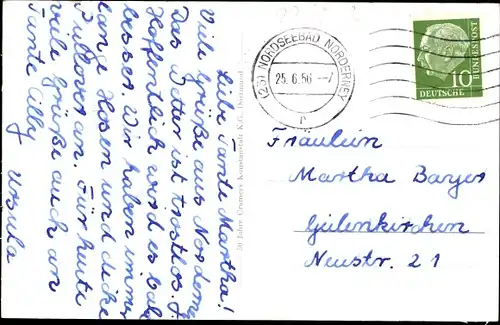 Liebe Tante Martha!
Viele Grüße aus Norderney
Das Wetter ist trostlos.
Hoffentlich wird es bald
besser. Wir haben immer
lange Hosen und dicke
Pullover an. Für heute
viele Grüße auch an
Tante Cilly
Ursula
50 Jahre Cramers Kunstanstalt K.G., Dortmund
(23) NORDSEEBAD NORDERNEY
25.6.56 -7
r
10
DEUTSCHE
BUNDESPOST
Fräulein
Martha Bayer
Geilenkirchen
Neustr. 21